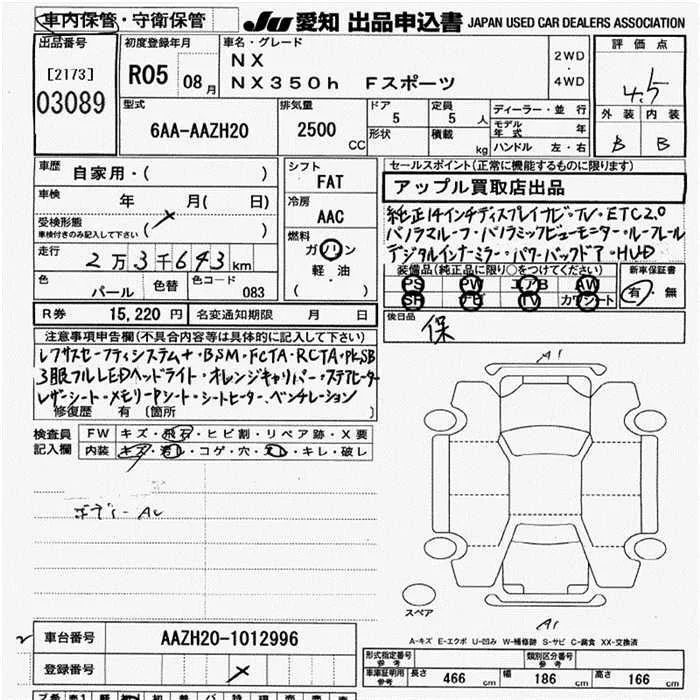 車内保管・守衛保管
JU 愛知 出品申込書 JAPAN USED CAR DEALERS ASSOCIATION
出品番号
[2173]
03089
初度登録年月
R05 08月
車名・グレード
NX
NX350h Fスポーツ
2WD
・
4WD
評価点
4.5
外装 内装
B B
型式
6AA-AAZH20
排気量
2500 CC
ドア
5
形状
定員
5 人
積載
kg
ディーラー・並行
モデル年式 年
ハンドル 左・右
車歴
自家用・( )
車検
年 月( 日)
受検形態
車検付きのみ記入して下さい ( )
走行
2万3千643km
色
パール
色替
色コード
083
シフト
FAT
冷房
AAC
燃料
ガソリン
軽・油
( )
セールスポイント(正常に機能するものに限ります)
アップル買取店出品
純正14インチディスプレイナビ・TV・ETC2.0
パノラマルーフ・パノラミックビューモニター・ルーフレール
デジタルインナーミラー・パワーバックドア・HUD
装備品(純正品に限り○をつけてください)
PS PW エアB AW
SR ナビ TV カワシート
新車保証書
有・無
後日品
保
R券 15,220 円 名変通知期限 月 日
注意事項申告欄(不具合内容等は具体的に記入して下さい)
レクサスセーフティシステム+・BSM・FCTA・RCTA・PKSB
3眼フルLEDヘッドライト・オレンジキャリパー・ステアヒーター
レザーシート・メモリーPシート・シートヒーター、ベンチレーション
修復歴 有 〔箇所 〕
検査員記入欄
FW キズ・飛石・ヒビ割・リペア跡・X要
内装 キズ・汚レ・コゲ・穴・スレ・キレ・破レ
A1
スペア
A1
A-キズ E-エクボ U-凹み W-補修跡 S-サビ C-腐食 XX-交換済
車台番号 AAZH20-1012996
登録番号
型式指定番号 参考
類別区分番号 参考
車庫証明用 参考
長さ 466 cm 幅 186 cm 高さ 166 cm